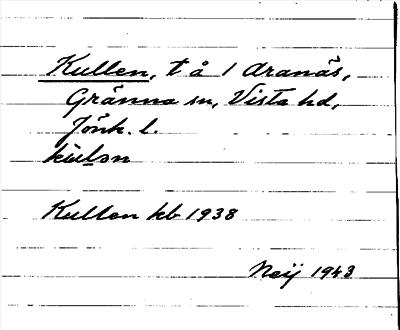 Kullen, t å 1 Aranäs,
Gränna sn, Vista hd,
Jönk. l.
kulən
Kullen kb 1938
Neij 1943